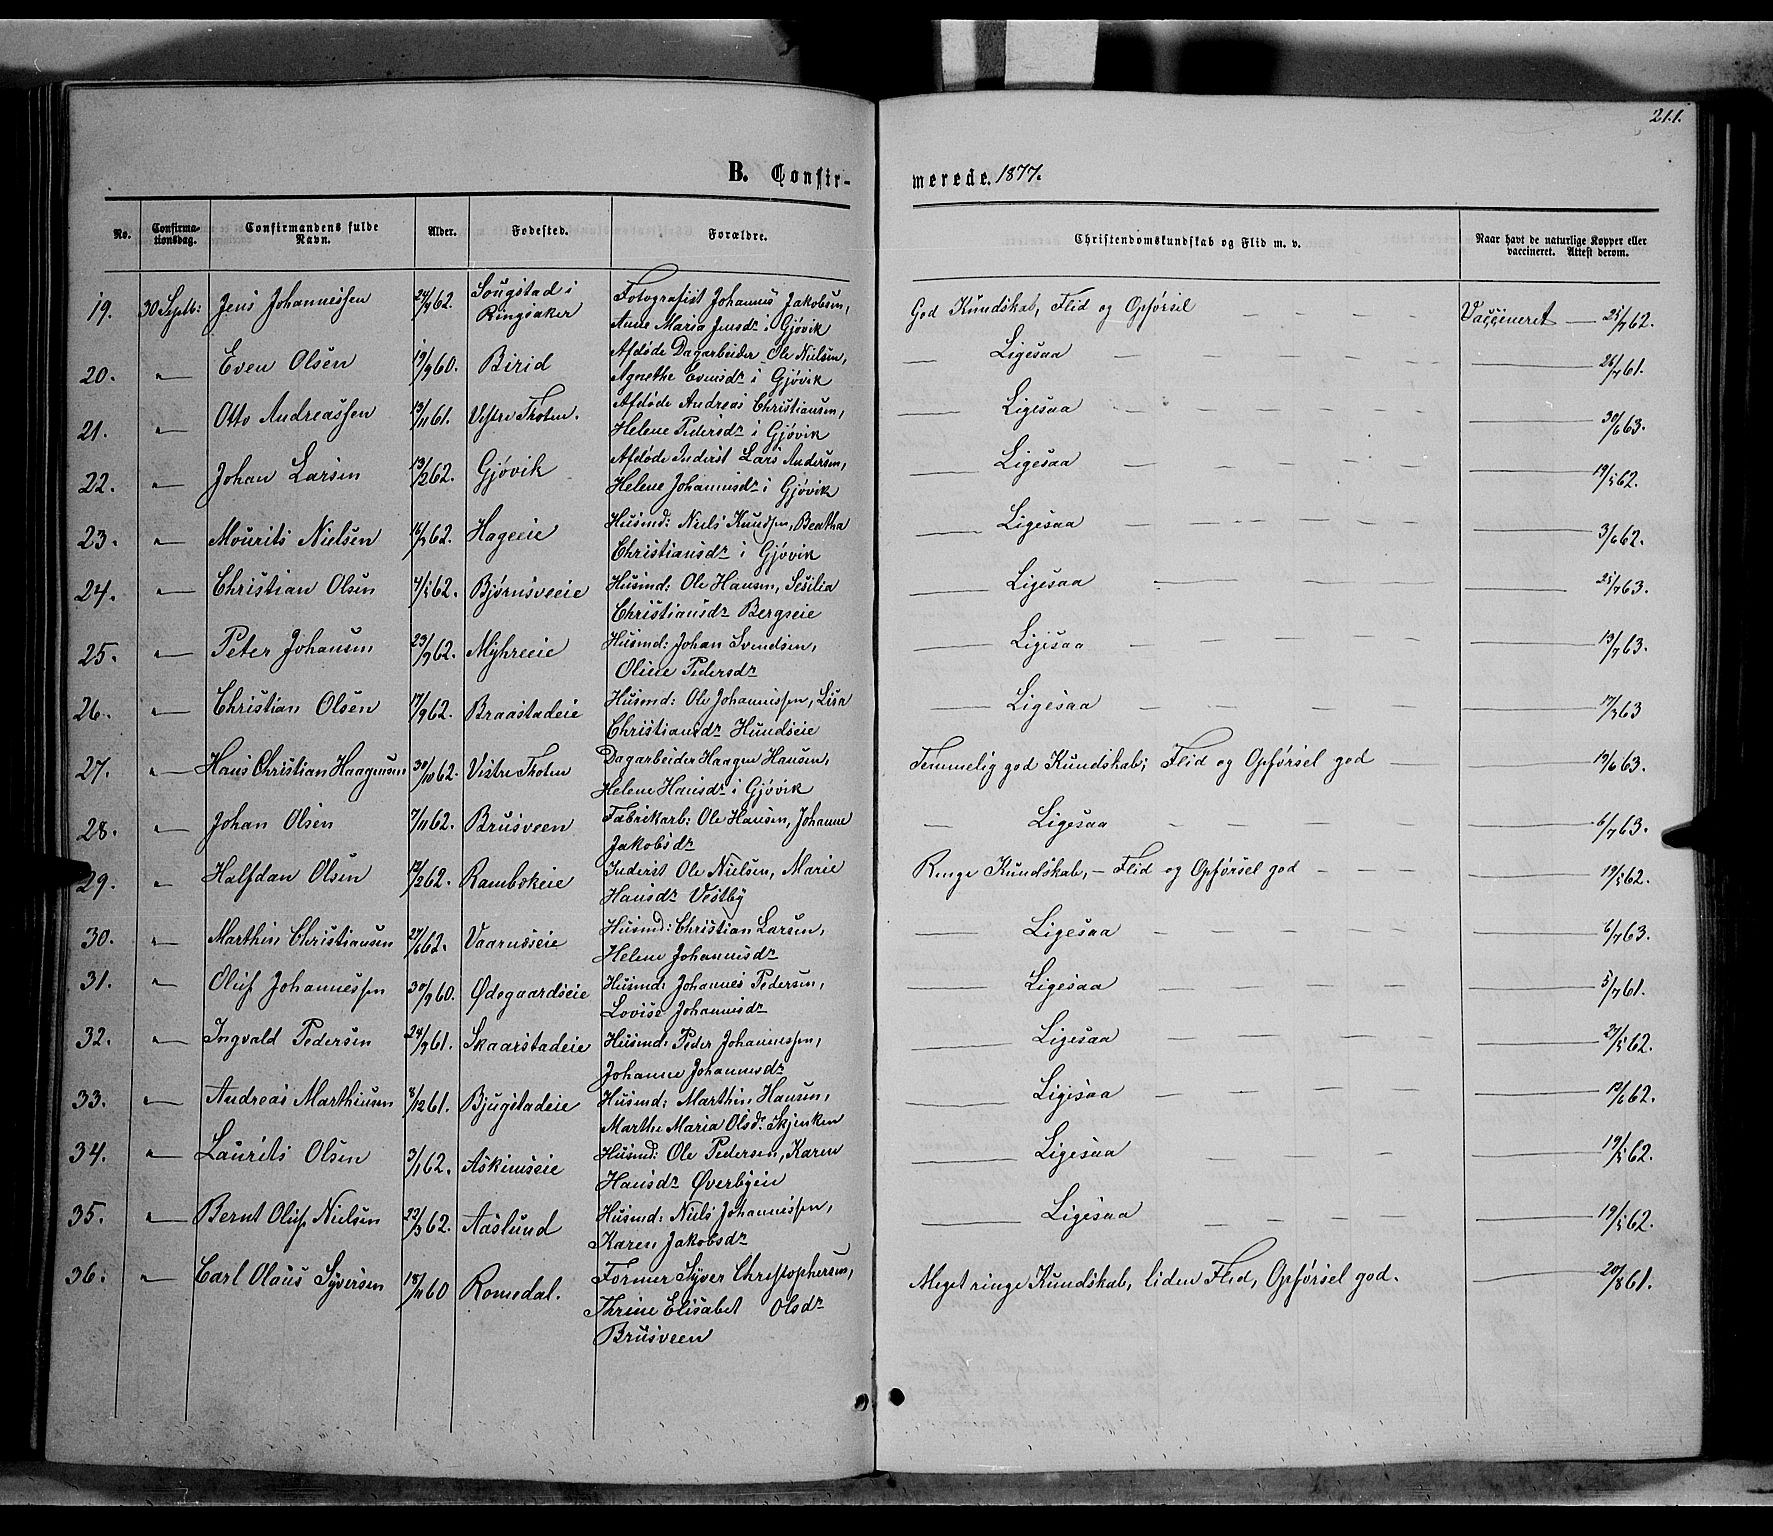 211.
B. Confir-
merede. 1877.
No. Confirma-tionsdag. Confirmandens fulde Navn. Alder. Fødested. Forældre. Christendomskundskab og Flid m. v. Naar havt de naturlige Kopper eller vaccineret. Attest derom.
19. 30 Septb: Jens Johannessen 24/4 62. Sougstad i Ringsaker Fotografist Johannes Jakobsen, Anne Maria Jensdr i Gjøvik God Kundskab, Flid og Opførsel Vaccineret 25/7 62.
20. " Even Olsen 19/9 60. Birid Afdøde Dagarbeider Ole Nielsen, Agnethe Evensdr i Gjøvik Ligesaa 26/7 61.
21. " Otto Andreassen 13/11 61. Vestre Thoten. Afdøde Andreas Christiansen, Helene Pedersdr i Gjøvik Ligesaa 30/6 63.
22. " Johan Larsen 13/2 62. Gjøvik Afdøde Inderst Lars Andersen, Helene Johannesdr i Gjøvik Ligesaa 19/5 62.
23. " Mourits Nielsen 62. Hageeie Husmd: Niels Knudsen, Beatha Christiansdr i Gjøvik Ligesaa 3/6 62.
24. " Christian Olsen 4/5 62. Bjørnsveeie Husmd: Ole Hansen, Sesilia Christiansdr Bergseie Ligesaa 25/7 63.
25. " Peter Johansen 23/9 62. Myhreeie Husmd: Johan Svendsen, Oline Pedersdr Ligesaa 13/7 63.
26. " Christian Olsen 17/9 62. Braastadeie Husmd: Ole Johannessen, Lisa Christiansdr Hundseie Ligesaa 17/3 63
27. " Hans Christian Haagensen 30/10 62. Vestre Thoten Dagarbeider Haagen Hansen, Helene Hansdr i Gjøvik Temmelig god Kundskab; Flid og Opførsel god 19/6 63.
28. " Johan Olsen 7/11 62. Brusveen Fabrikarb: Ole Hansen, Johanne Jakobsdr Ligesaa 6/7 63.
29. " Halfdan Olsen 12/2 62. Rambekeie Inderst Ole Nielsen, Marie Hansdr Vestby Ringe Kundskab, - Flid og Opførsel god 19/5 62.
30. " Marthin Christiansen 27/6 62. Vaarnæseie Husmd: Christian Larsen, Helene Johannesdr Ligesaa 6/7 63.
31. " Oluf Johannessen 30/9 60. Ødegaardseie Husmd: Johannes Pedersen, Lovise Johannesdr Ligesaa 5/7 61.
32. " Ingvald Pedersen 24/9 61. Skaarstadeie Husmd: Peder Johannessen, Johanne Johannesdr Ligesaa 27/5 62.
33. " Andreas Marthinsen 8/12 61. Bjugstadeie Husmd: Marthin Hansen, Marthe Maria Olsdr Skjenken Ligesaa 12/6 62.
34. " Laurits Olsen 3/1 62. Askimseie Husmd: Ole Pedersen, Karen Hansdr Øverbyeie Ligesaa 19/5 62.
35. " Bernt Oluf Nielsen 22/3 62. Aaslund Husmd: Niels Johannessen, Karen Jakobsdr Ligesaa 19/5 62.
36. " Carl Olaus Syversen 18/11 60 Romedal. Former Syver Christophersen, Thrine Elisabet Olsdr Brusveen Meget ringe Kundskab, liden Flid, Opførsel god. 20/8 61.